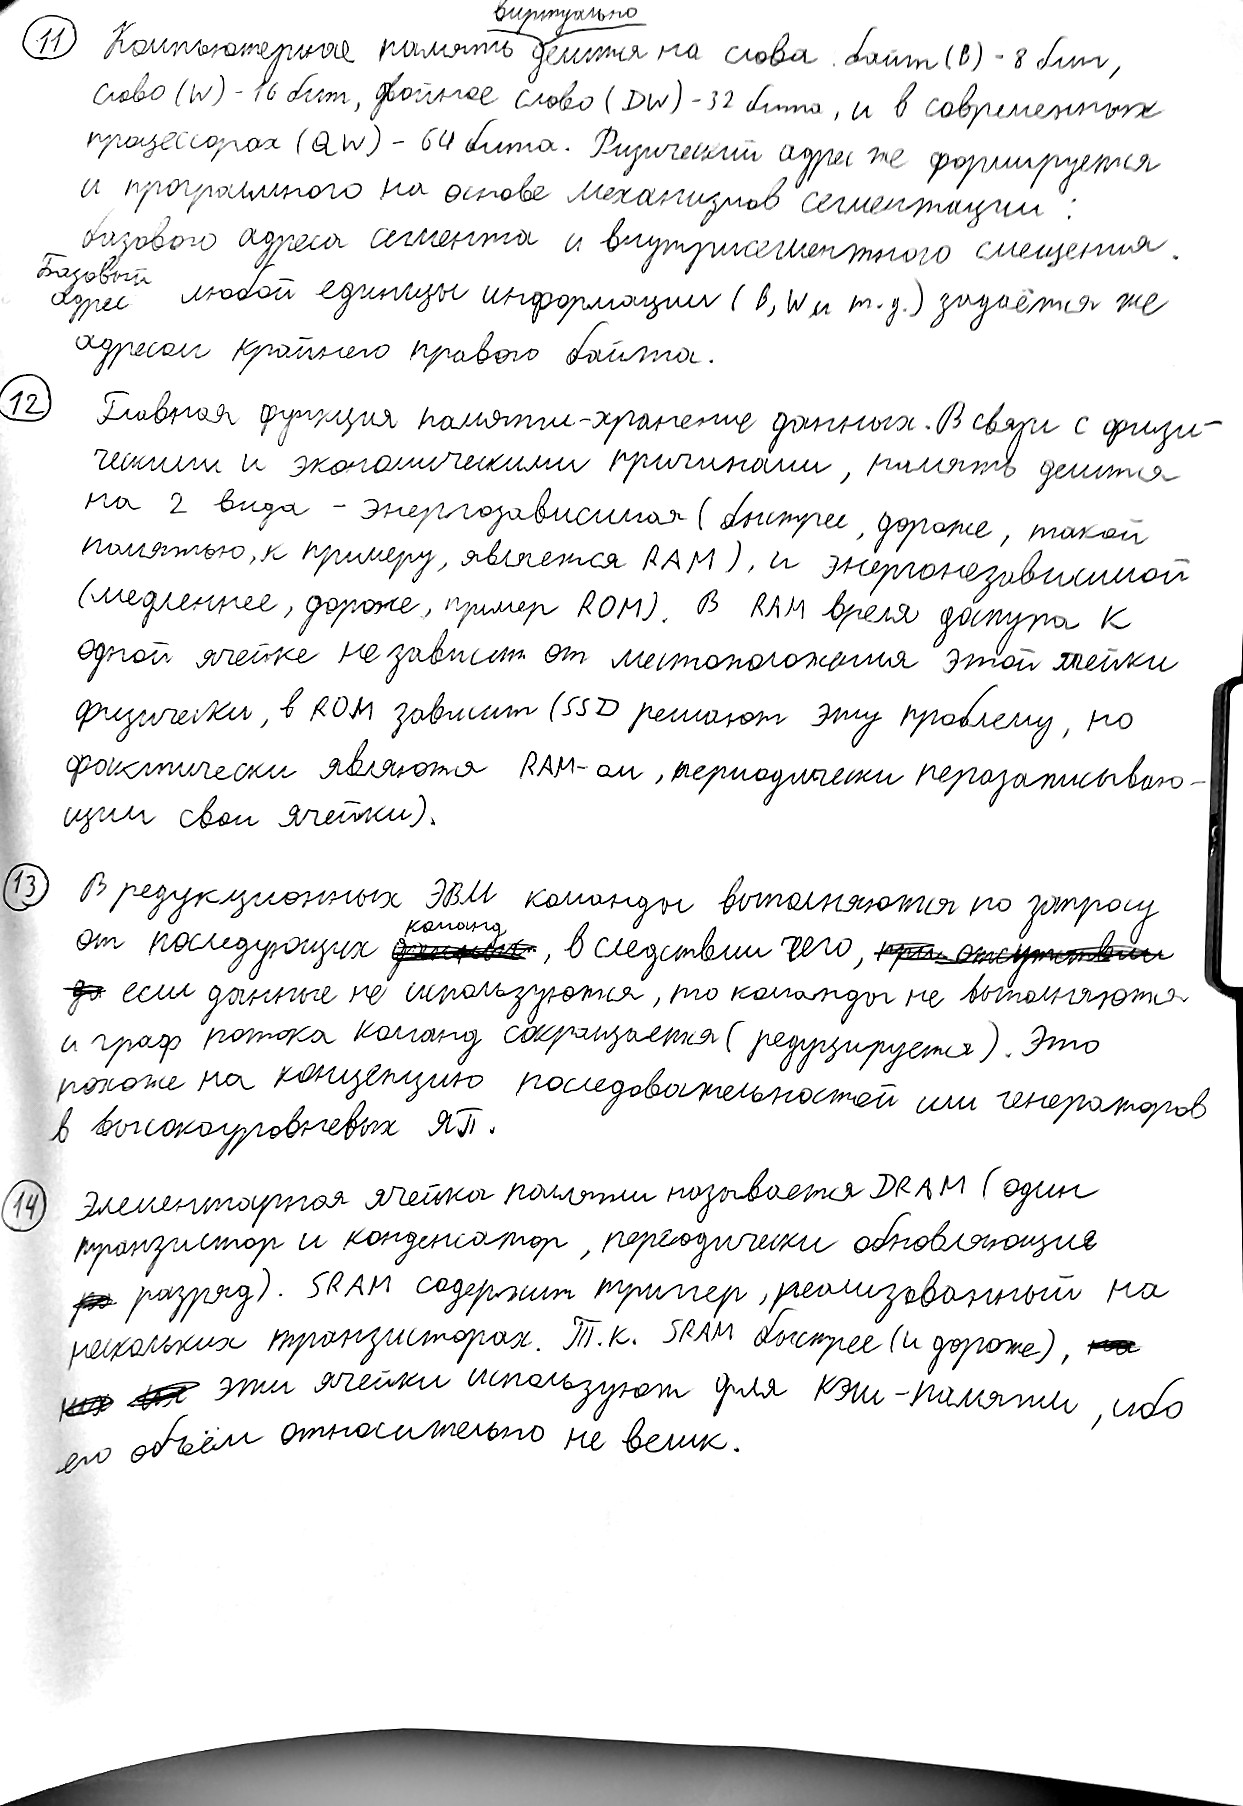 виртуально
11 Компьютерное память делится на слова. байт (B) - 8 бит,
слово (W) - 16 бит, двойное слово (DW) - 32 бита, и в современных
процессорах (QW) - 64 бита. Физический адрес же формируется
и программного на основе механизмов сегментации:
базового адреса сегмента и внутрисегментного смещения.
Базовый
адрес любой единицы информации (B, W и т.д.) задаётся же
адресом крайнего правого байта.
12 Главная функция памяти - хранение данных. В связи с физи-
ческими и экономическими причинами, память делится
на 2 вида - энергозависимая (быстрее, дороже, такой
памятью, к примеру, является RAM), и энергонезависимой
(медленнее, дороже, пример ROM). В RAM время доступа к
одной ячейке не зависит от местоположения этой ячейки
физически, в ROM зависит (SSD решают эту проблему, но
фактически являются RAM-ом, периодически перезаписываю-
щим свои ячейки).
13 В редукционных ЭВМ команды выполняются по запросу
от последующих команд, в следствии чего,
если данные не используются, то команды не выполняются
и граф потока команд сокращается (редуцируется). Это
похоже на концепцию последовательностей или генераторов
в высокоуровневых ЯП.
14 Элементарная ячейка памяти называется DRAM (один
транзистор и конденсатор, периодически обновляющие
разряд). SRAM содержит триггер, реализованный на
нескольких транзисторах. Т.к. SRAM быстрее (и дороже),
эти ячейки используют для кэш-памяти, ибо
его объём относительно не велик.